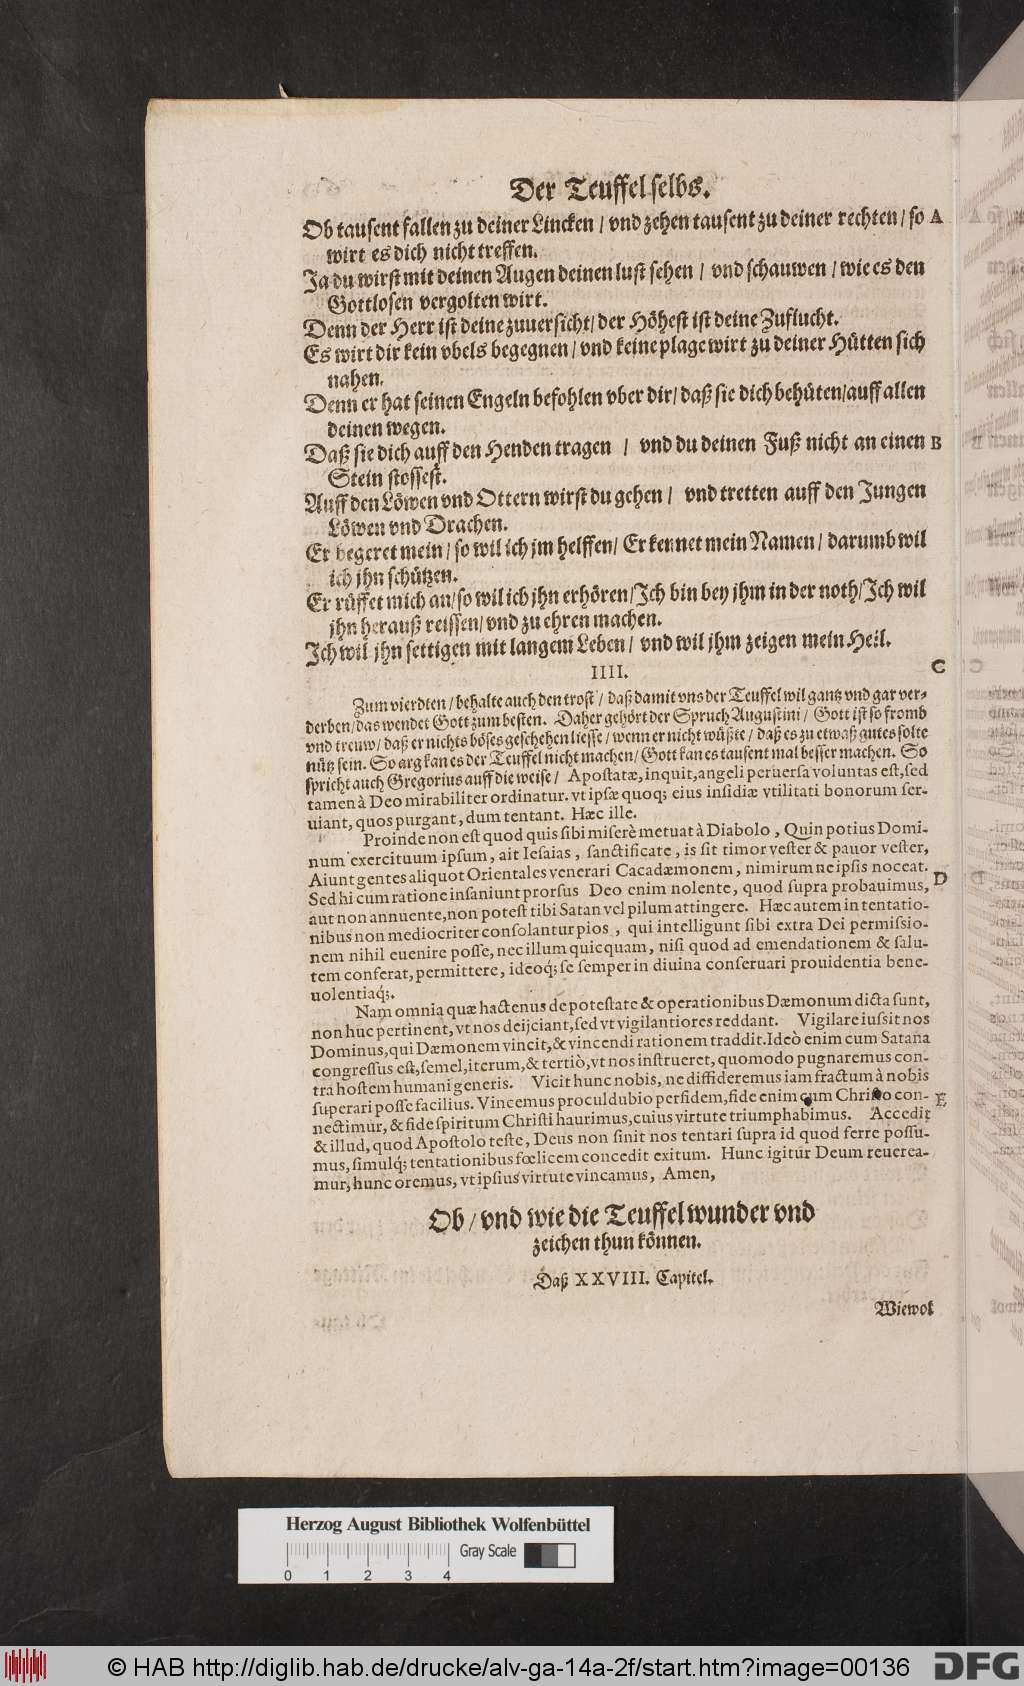 Der Teuffel selbs.
Ob tausent fallen zu deiner Lincken / vnd zehen tausent zu deiner rechten / so A
wirt es dich nicht treffen.
Ja du wirst mit deinen Augen deinen lust sehen / vnd schauwen / wie es den
Gottlosen vergolten wirt.
Denn der Herr ist deine zuuersicht / der Höhest ist deine Zuflucht.
Es wirt dir kein vbels begegnen / vnd keine plage wirt zu deiner Hütten sich
nahen.
Denn er hat seinen Engeln befohlen vber dir / daß sie dich behüten / auff allen
deinen wegen.
Daß sie dich auff den Henden tragen / vnd du deinen Fuß nicht an einen B
Stein stossest.
Auff den Löwen vnd Ottern wirst du gehen / vnd tretten auff den Jungen
Löwen vnd Drachen.
Er begeret mein / so wil ich jm helffen / Er kennet mein Namen / darumb wil
ich jhn schützen.
Er rüffet mich an / so wil ich jhn erhören / Ich bin bey jhm in der noth / Ich wil
jhn herauß reissen / vnd zu ehren machen.
Ich wil jhn settigen mit langem Leben / vnd wil jhm zeigen mein Heil.
IIII. C
Zum vierdten / behalte auch den trost / daß damit vns der Teuffel wil gantz vnd gar ver-
derben / das wendet Gott zum besten. Daher gehört der Spruch Augustini / Gott ist so fromb
vnd treuw / daß er nichts böses geschehen liesse / wenn er nicht wüßte / daß es zu etwaß gutes solte
nütz sein. So arg kan es der Teuffel nicht machen / Gott kan es tausent mal besser machen. So
spricht auch Gregorius auff die weise / Apostatæ, inquit, angeli peruersa voluntas est, sed
tamen à Deo mirabiliter ordinatur. vt ipsæ quoq; eius insidiæ vtilitati bonorum ser-
uiant, quos purgant, dum tentant. Hæc ille.
Proinde non est quod quis sibi miserè metuat à Diabolo, Quin potius Domi-
num exercituum ipsum, ait Iesaias, sanctificate, is sit timor vester & pauor vester,
Aiunt gentes aliquot Orientales venerari Cacadæmonem, nimirum ne ipsis noceat.
Sed hi cum ratione insaniunt prorsus Deo enim nolente, quod supra probauimus, D
aut non annuente, non potest tibi Satan vel pilum attingere. Hæc autem in tentatio-
nibus non mediocriter consolantur pios, qui intelligunt sibi extra Dei permissio-
nem nihil euenire posse, nec illum quicquam, nisi quod ad emendationem & salu-
tem conferat, permittere, ideoq́; se semper in diuina conseruari prouidentia bene-
uolentiaq́;.
Nam omnia quæ hactenus de potestate & operationibus Dæmonum dicta sunt,
non huc pertinent, vt nos deijciant, sed vt vigilantiores reddant. Vigilare iussit nos
Dominus, qui Dæmonem vincit, & vincendi rationem traddit. Ideò enim cum Satana
congressus est, semel, iterum, & tertiò, vt nos instrueret, quomodo pugnaremus con-
tra hostem humani generis. Vicit hunc nobis, ne diffideremus iam fractum à nobis
superari posse facilius. Vincemus procul dubio perfidem, fide enim cum Christo con- E
nectimur, & fide spiritum Christi haurimus, cuius virtute triumphabimus. Accedit
& illud, quod Apostolo teste, Deus non sinit nos tentari supra id quod ferre possu-
mus, simulq́; tentationibus fœlicem concedit exitum. Hunc igitur Deum reuerea-
mur, hunc oremus, vt ipsius virtute vincamus, Amen,
Ob / vnd wie die Teuffel wunder vnd
zeichen thun können.
Daß XXVIII. Capitel.
Wiewol
Herzog August Bibliothek Wolfenbüttel
Gray Scale
0 1 2 3 4
© HAB http://diglib.hab.de/drucke/alv-ga-14a-2f/start.htm?image=00136 DFG